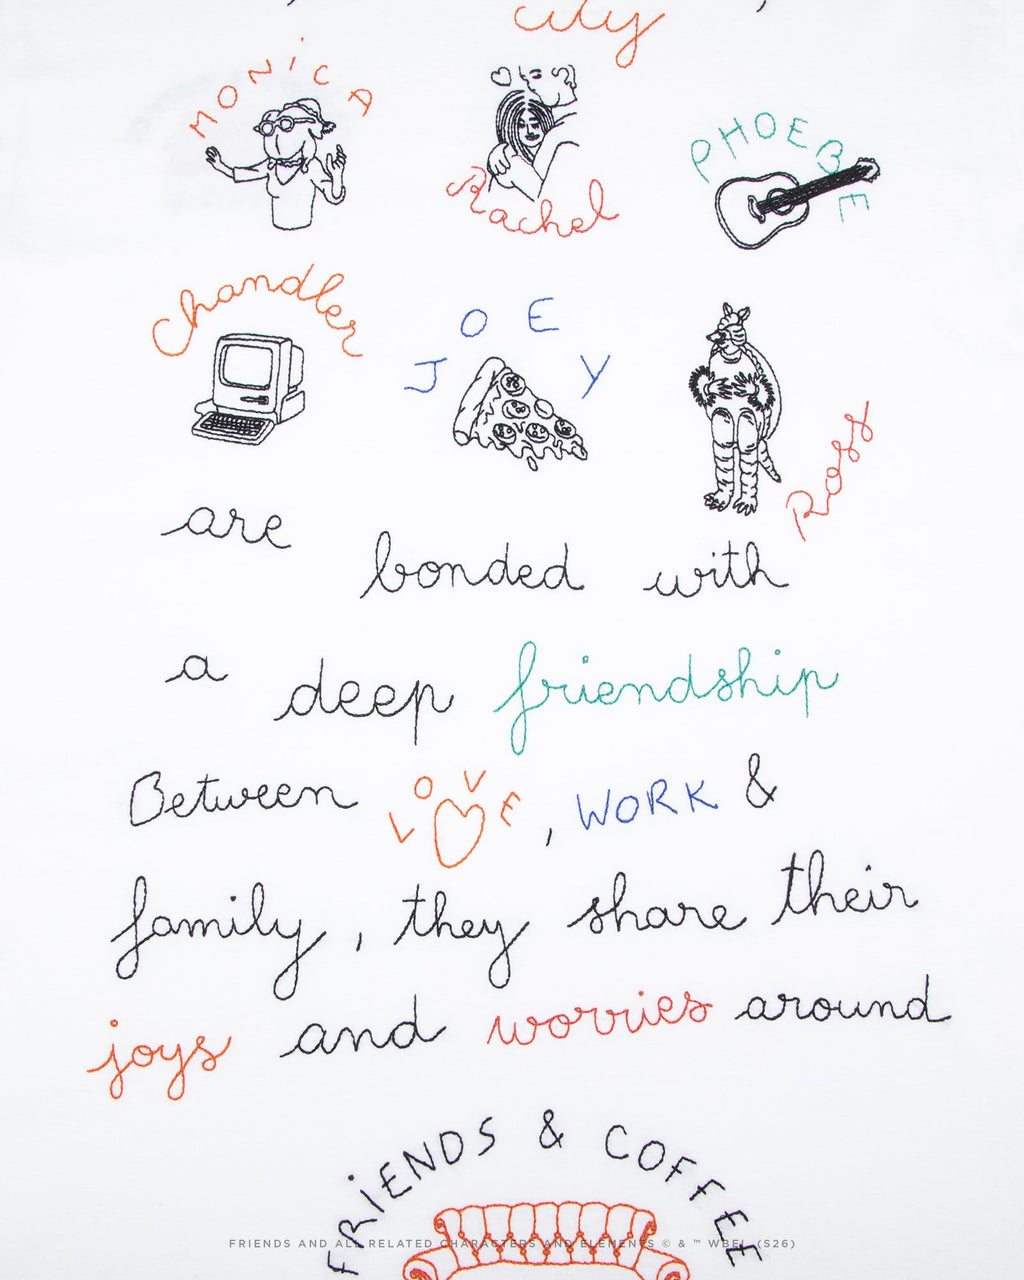 city
MONICA
Rachel
PHOEBE
Chandler
JOEY
Ross
are bonded with
a deep friendship
Between LOVE, WORK &
family, they share their
joys and worries around
FRIENDS & COFFEE
FRIENDS AND ALL RELATED CHARACTERS AND ELEMENTS © & ™ WBEI. (S26)